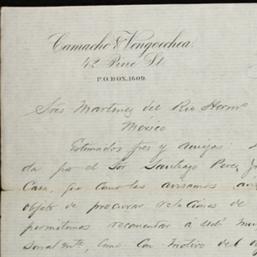 Camacho & Vengoechea.
42 Pine St.
P.O. BOX, 1609.
Sres Martinez del Rio Hermos
Mexico
Estimados Sres y amigos:
da por el Sor Santiago Perez
Casa, por como les avisamos
objeto de procurar relaciones de
permitimos recomendar a Uds
como con motivo del